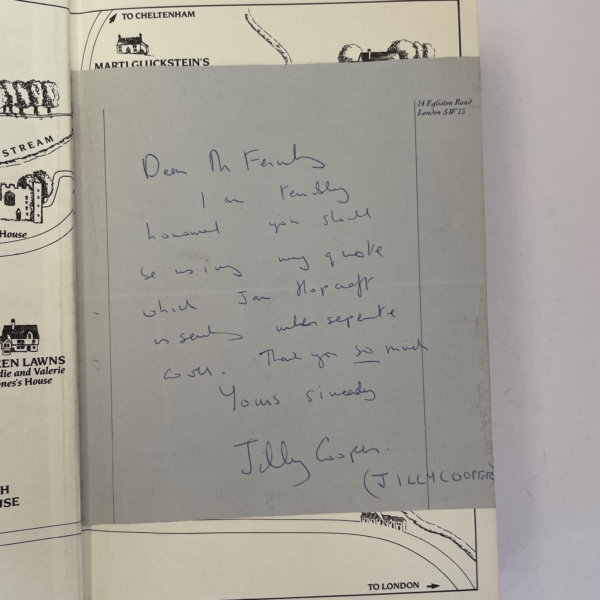 TO CHELTENHAM
MARTI GLUCKSTEIN'S
STREAM
House
EEN LAWNS
die and Valerie
ones's House
H
USE
14 Egliston Road
London SW15
Dear Mr
I am terribly
honoured you should
be using my quote
which Jan Hopcraft
is sending under separate
cover. Thank you so much
Yours sincerely
Jilly Cooper.
(JILLY COOPER)
TO LONDON